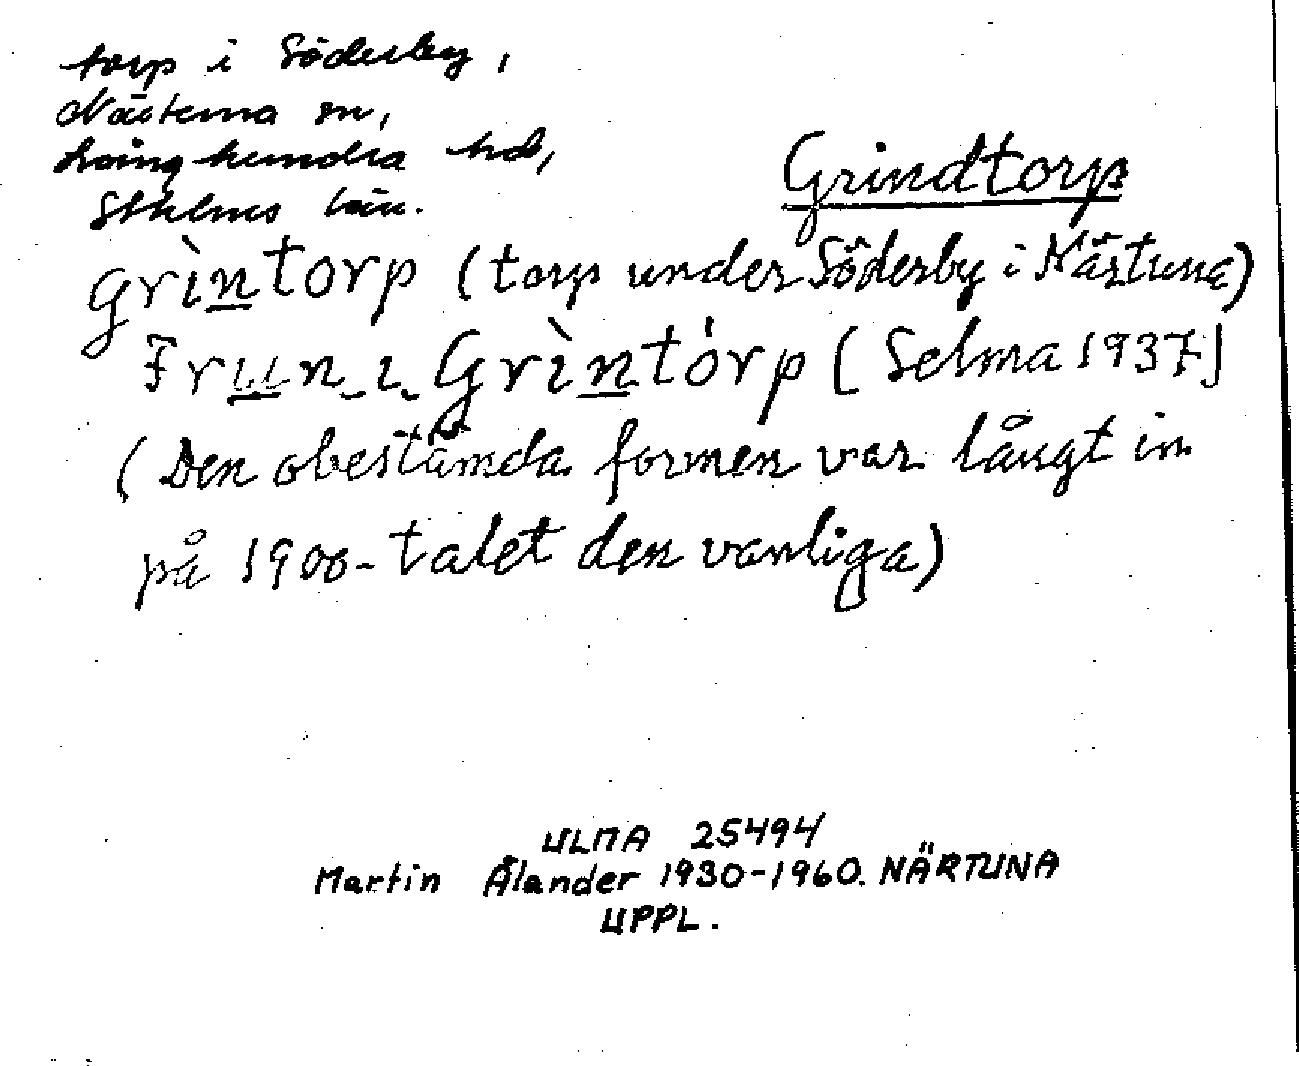 torp i Söderby,
Närtuna sn,
Långhundra hd,
Sthlms län.
Grindtorp
grìntorp (torp under Söderby i Närtuna)
Frun ı Grìntórp [Selma 1937]
(Den obestämda formen var långt in
på 1900-talet den vanliga)
ULMA 25494
Martin Ålander 1930-1960. NÄRTUNA
UPPL.